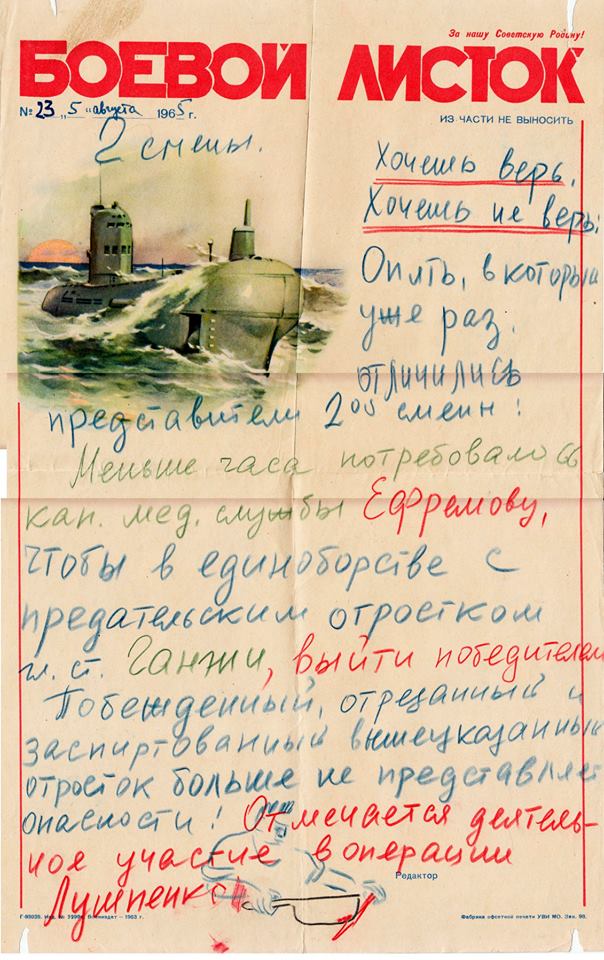 За нашу Советскую Родину!
БОЕВОЙ ЛИСТОК
№ 23 „5" августа 1965 г.
ИЗ ЧАСТИ НЕ ВЫНОСИТЬ
2 смены.
Хочешь верь,
Хочешь не верь!
Опять, в который
уже раз,
отличились
представители 2ой смены!
Меньше часа потребовалось
кап. мед. службы Ефремову,
чтобы в единоборстве с
предательским отростком
гл. ст. Ганжи, выйти победителем
Побежденный, отрезанный и
заспиртованный вышеуказанный
отросток больше не представляет
опасности! Отмечается деятель-
ное участие в операции
Лушпенко!
Редактор
Воениздат — 1963 г.
Фабрика офсетной печати УВИ МО. Зак. 98.